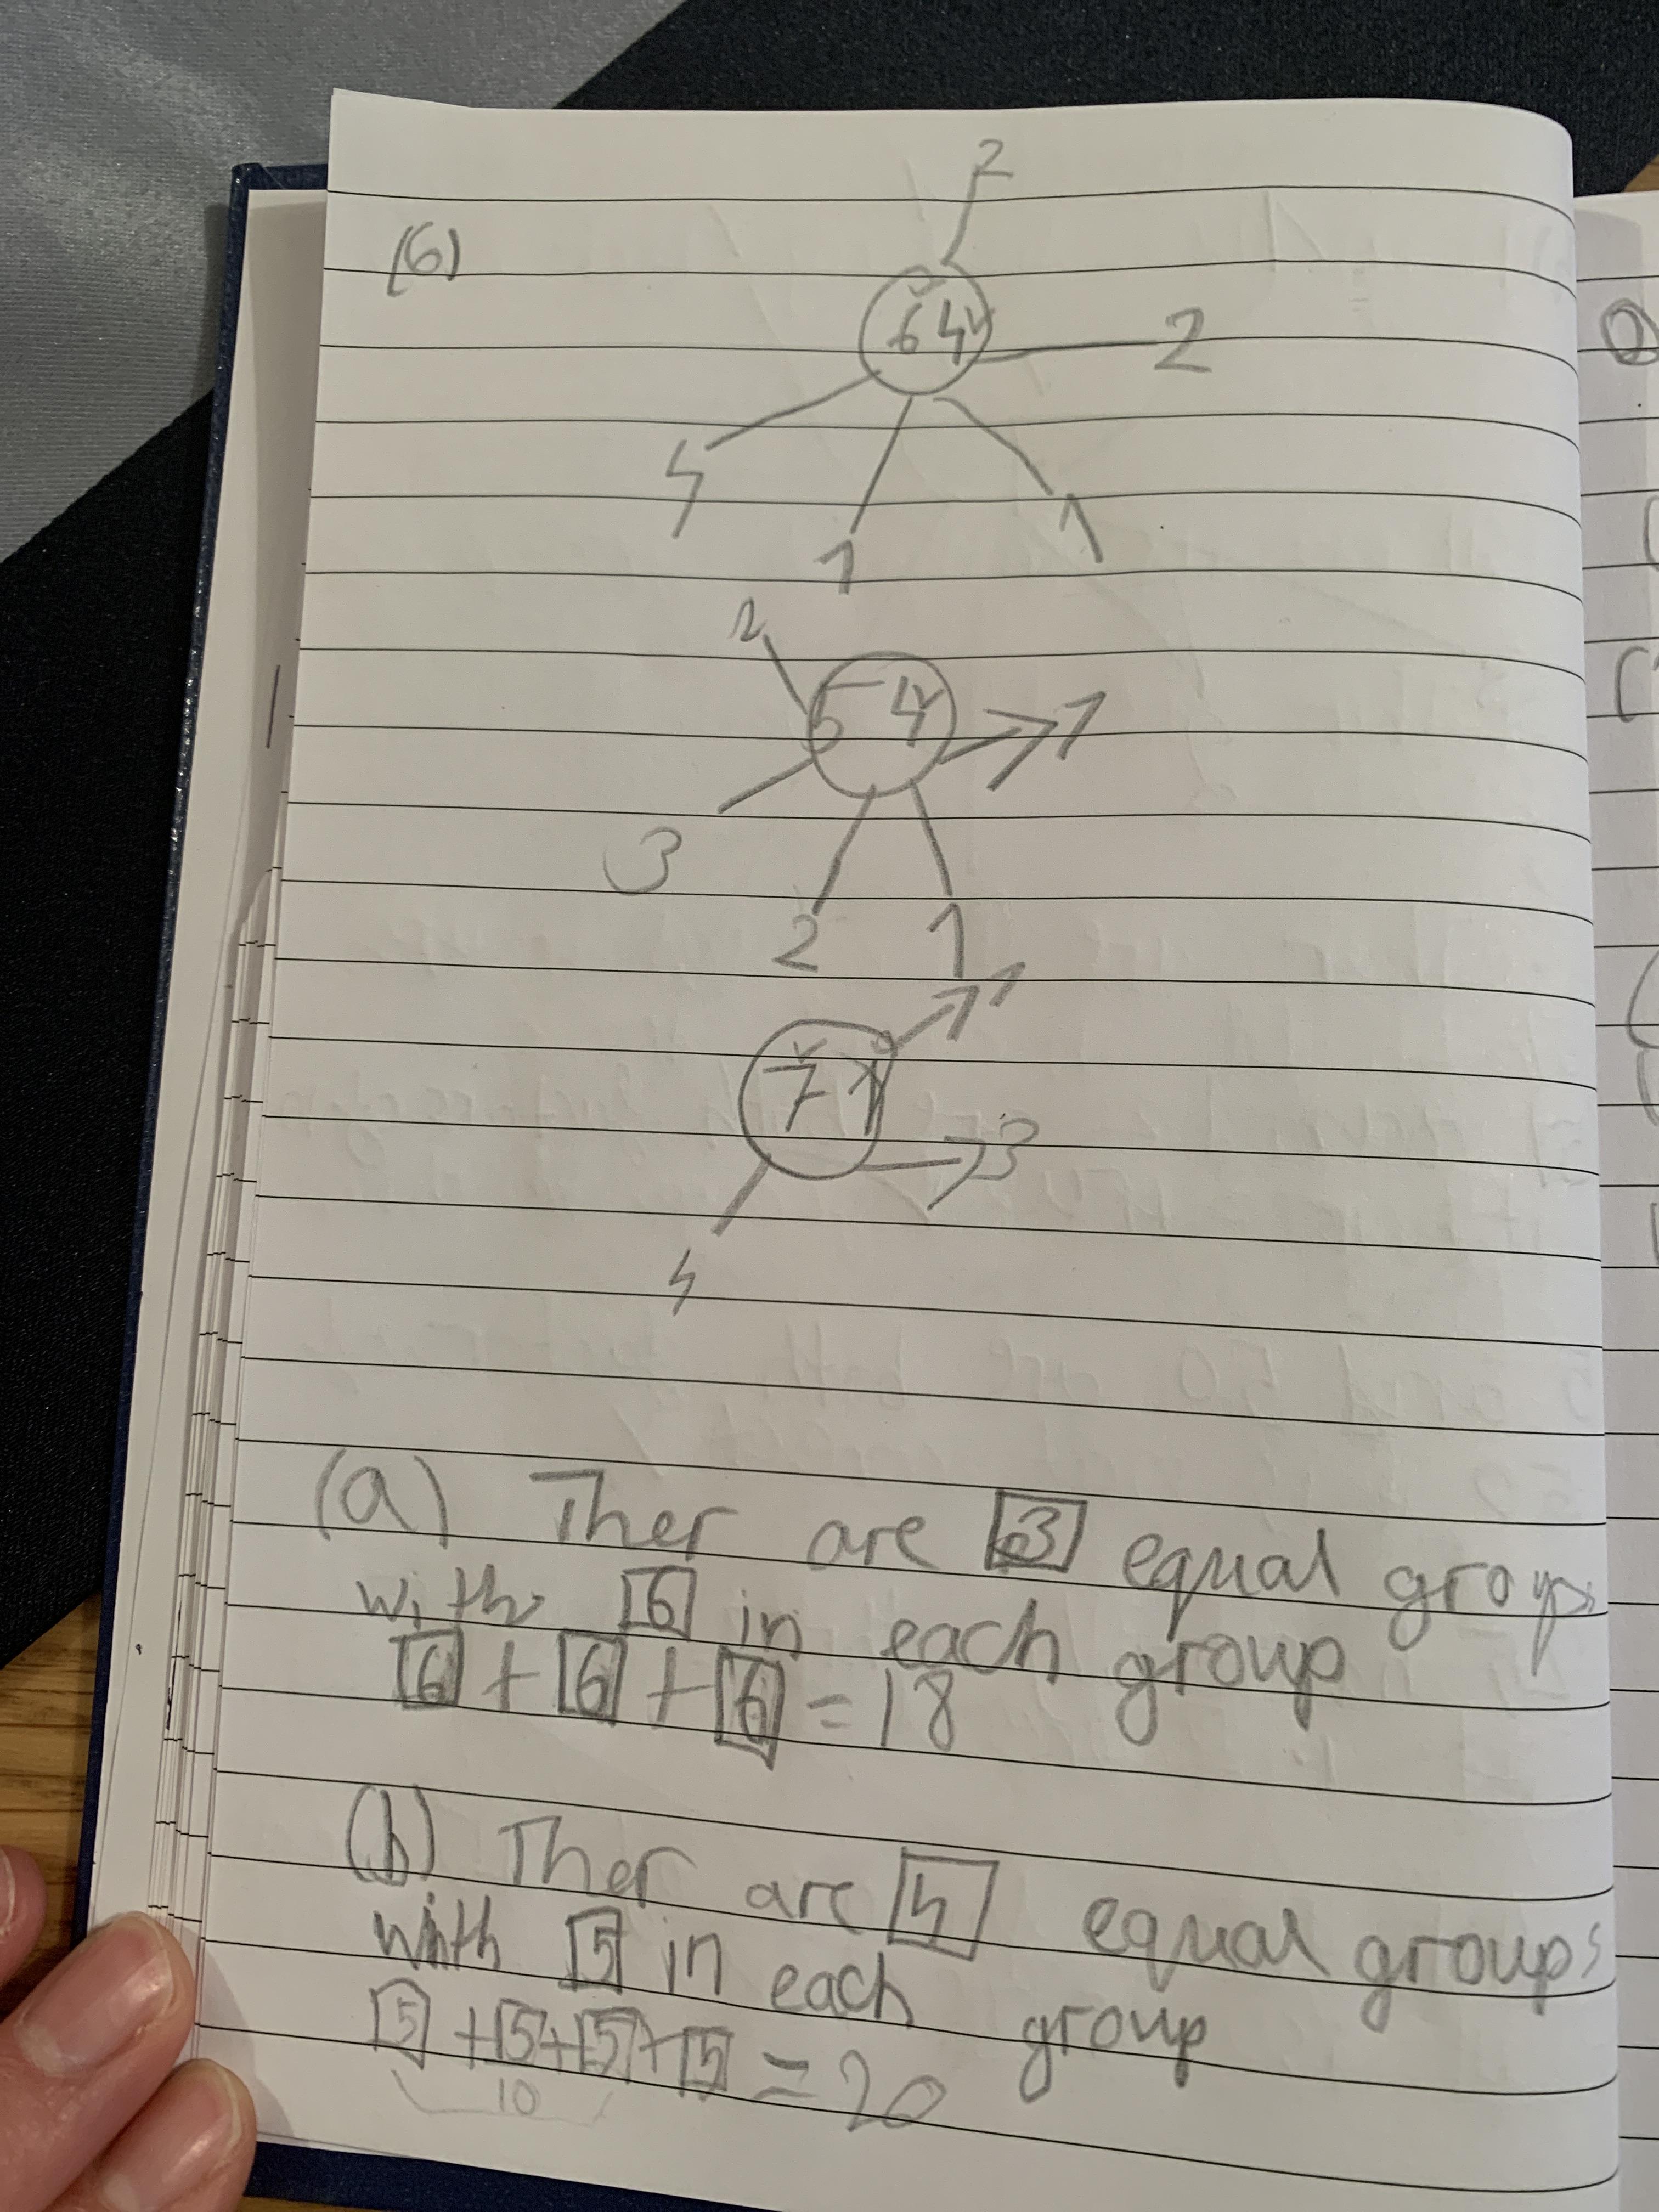 2
(6)
64
2
4
1
1
2
54
1
3
2
1
1
7
3
4
(a) Ther are 3 equal groups
with 6 in each group
6 + 6 + 6 = 18
(b) Ther are 4 equal groups
with 5 in each group
5 + 5 + 5 + 5 = 20
10